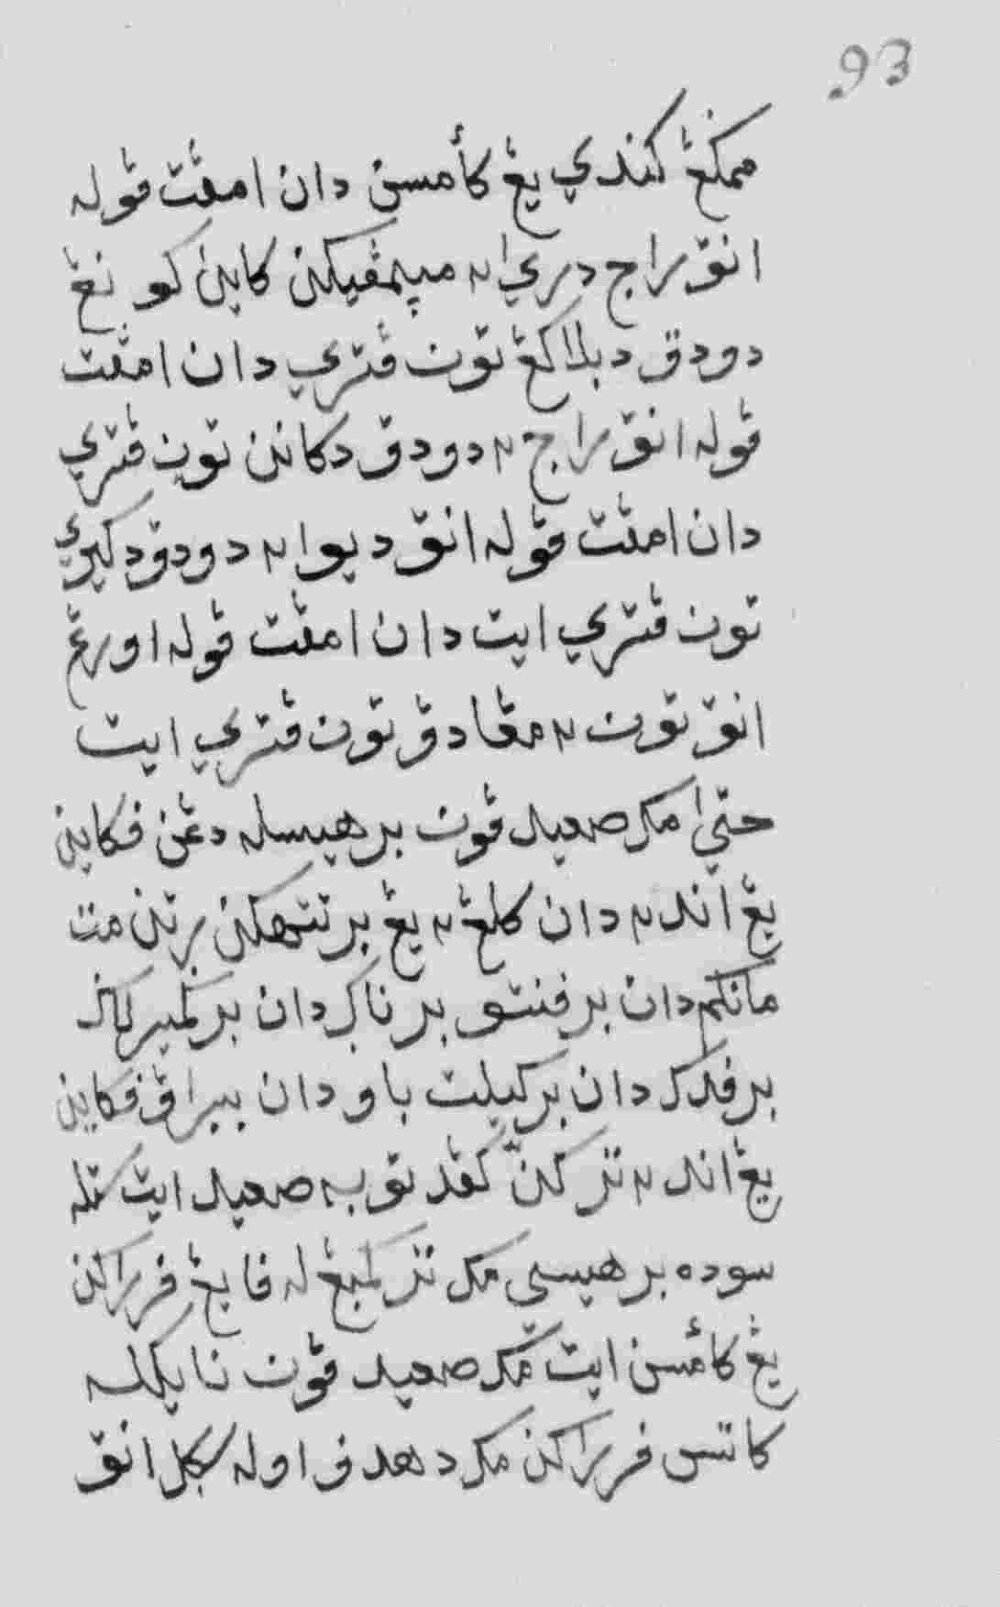 93
ممكڠ كندي يڠ كأمسن دان امڤت ڤوله
انق راج ٢ دري ا٢ مڽمڤيكن كاين كونڠ
دودق دبلاكڠ توان ڤتري دان امڤت
ڤوله انق راج ٢ دودق دكانن توان ڤتري
دان امڤت ڤوله انق ديوا ٢ دودق دكيري
توان ڤتري ايت دان امڤت ڤوله اورڠ
انق توان ٢ مڠادڤ توان ڤتري ايت
حتي مك صعيد ڤون برهيسله دڠن فكاين
يڠ انده ٢ دان كلڠ ٢ يڠ برتتهكن رتن مت
مانكم دان برفنتو برناك دان بركمير كان
برفدك دان بركيلت باو دان ببراڤ فكاين
يڠ انده ٢ تركن كڤد توبه صعيد ايت ستله
سوده برهيسي مك تركمبڠ له فايڠ فرراكن
يڠ كأمسن ايت مك صعيد ڤون نايكله
كاتس فرراكن مك دهدف اوله سكل انق